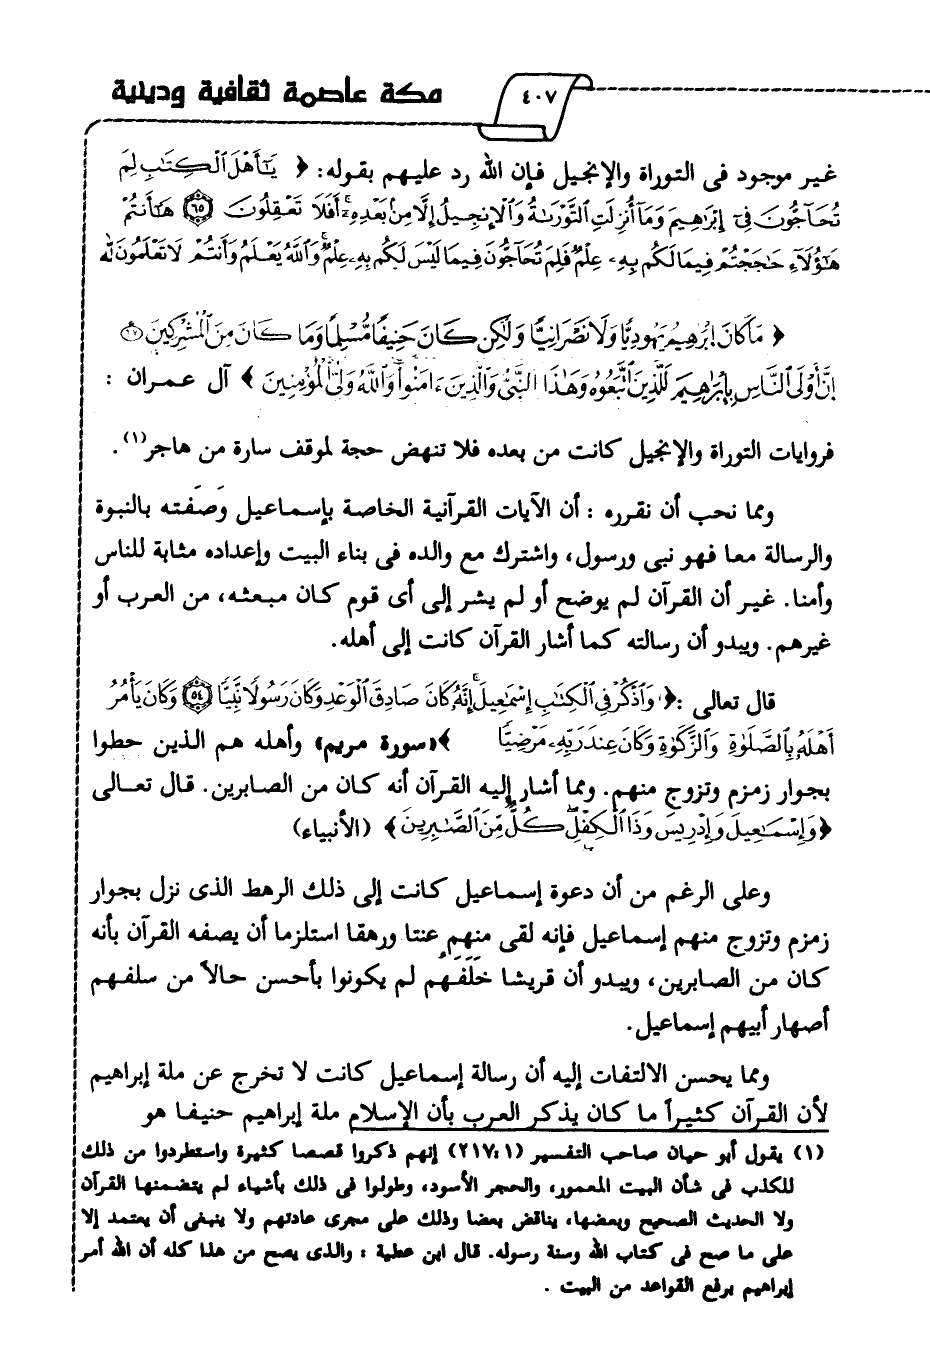 ٤٠٧
مكة عاصمة ثقافية ودينية
غير موجود فى التوراة والإنجيل فإن الله رد عليهم بقوله: ﴿ يَٰٓأَهْلَ ٱلْكِتَٰبِ لِمَ
تُحَآجُّونَ فِىٓ إِبْرَٰهِيمَ وَمَآ أُنزِلَتِ ٱلتَّوْرَىٰةُ وَٱلْإِنجِيلُ إِلَّا مِنۢ بَعْدِهِۦٓ ۚ أَفَلَا تَعْقِلُونَ ٦٥ هَٰٓأَنتُمْ
هَٰٓؤُلَآءِ حَٰجَجْتُمْ فِيمَا لَكُم بِهِۦ عِلْمٌ فَلِمَ تُحَآجُّونَ فِيمَا لَيْسَ لَكُم بِهِۦ عِلْمٌ ۚ وَٱللَّهُ يَعْلَمُ وَأَنتُمْ لَا تَعْلَمُونَ
﴿ مَا كَانَ إِبْرَٰهِيمُ يَهُودِيًّا وَلَا نَصْرَانِيًّا وَلَٰكِن كَانَ حَنِيفًا مُّسْلِمًا وَمَا كَانَ مِنَ ٱلْمُشْرِكِينَ ٦٧
إِنَّ أَوْلَى ٱلنَّاسِ بِإِبْرَٰهِيمَ لَلَّذِينَ ٱتَّبَعُوهُ وَهَٰذَا ٱلنَّبِىُّ وَٱلَّذِينَ ءَامَنُوا۟ ۗ وَٱللَّهُ وَلِىُّ ٱلْمُؤْمِنِينَ ﴾ آل عمران :
فروايات التوراة والإنجيل كانت من بعده فلا تنهض حجة لموقف سارة من هاجر(١).
ومما نحب أن نقرره : أن الآيات القرآنية الخاصة بإسماعيل وَصَفَته بالنبوة
والرسالة معا فهو نبى ورسول، واشترك مع والده فى بناء البيت وإعداده مثابة للناس
وأمنا. غير أن القرآن لم يوضح أو لم يشر إلى أى قوم كان مبعثه، من العرب أو
غيرهم. ويبدو أن رسالته كما أشار القرآن كانت إلى أهله.
قال تعالى :﴿ وَٱذْكُرْ فِى ٱلْكِتَٰبِ إِسْمَٰعِيلَ ۚ إِنَّهُۥ كَانَ صَادِقَ ٱلْوَعْدِ وَكَانَ رَسُولًا نَّبِيًّا ٥٤ وَكَانَ يَأْمُرُ
أَهْلَهُۥ بِٱلصَّلَوٰةِ وَٱلزَّكَوٰةِ وَكَانَ عِندَ رَبِّهِۦ مَرْضِيًّا ﴾ «سورة مريم» وأهله هم الذين حطوا
بجوار زمزم وتزوج منهم. ومما أشار إليه القرآن أنه كان من الصابرين. قال تعالى
﴿ وَإِسْمَٰعِيلَ وَإِدْرِيسَ وَذَا ٱلْكِفْلِ ۖ كُلٌّ مِّنَ ٱلصَّٰبِرِينَ ﴾ (الأنبياء)
وعلى الرغم من أن دعوة إسماعيل كانت إلى ذلك الرهط الذى نزل بجوار
زمزم وتزوج منهم إسماعيل فإنه لقى منهم عنتا ورهقا استلزما أن يصفه القرآن بأنه
كان من الصابرين، ويبدو أن قريشا خَلَفَهم لم يكونوا بأحسن حالاً من سلفهم
أصهار أبيهم إسماعيل.
ومما يحسن الالتفات إليه أن رسالة إسماعيل كانت لا تخرج عن ملة إبراهيم
لأن القرآن كثيراً ما كان يذكر العرب بأن الإسلام ملة إبراهيم حنيفا هو
(١) يقول أبو حيان صاحب التفسير (٢١٧:١) إنهم ذكروا قصصا كثيرة واستطردوا من ذلك
للكذب فى شأن البيت المعمور، والحجر الأسود، وطولوا فى ذلك بأشياء لم يتضمنها القرآن
ولا الحديث الصحيح وبعضها، يناقض بعضا وذلك على مجرى عادتهم ولا ينبغى أن يعتمد إلا
على ما صح فى كتاب الله وسنة رسوله. قال ابن عطية : والذى يصح من هذا كله أن الله أمر
إبراهيم برفع القواعد من البيت .